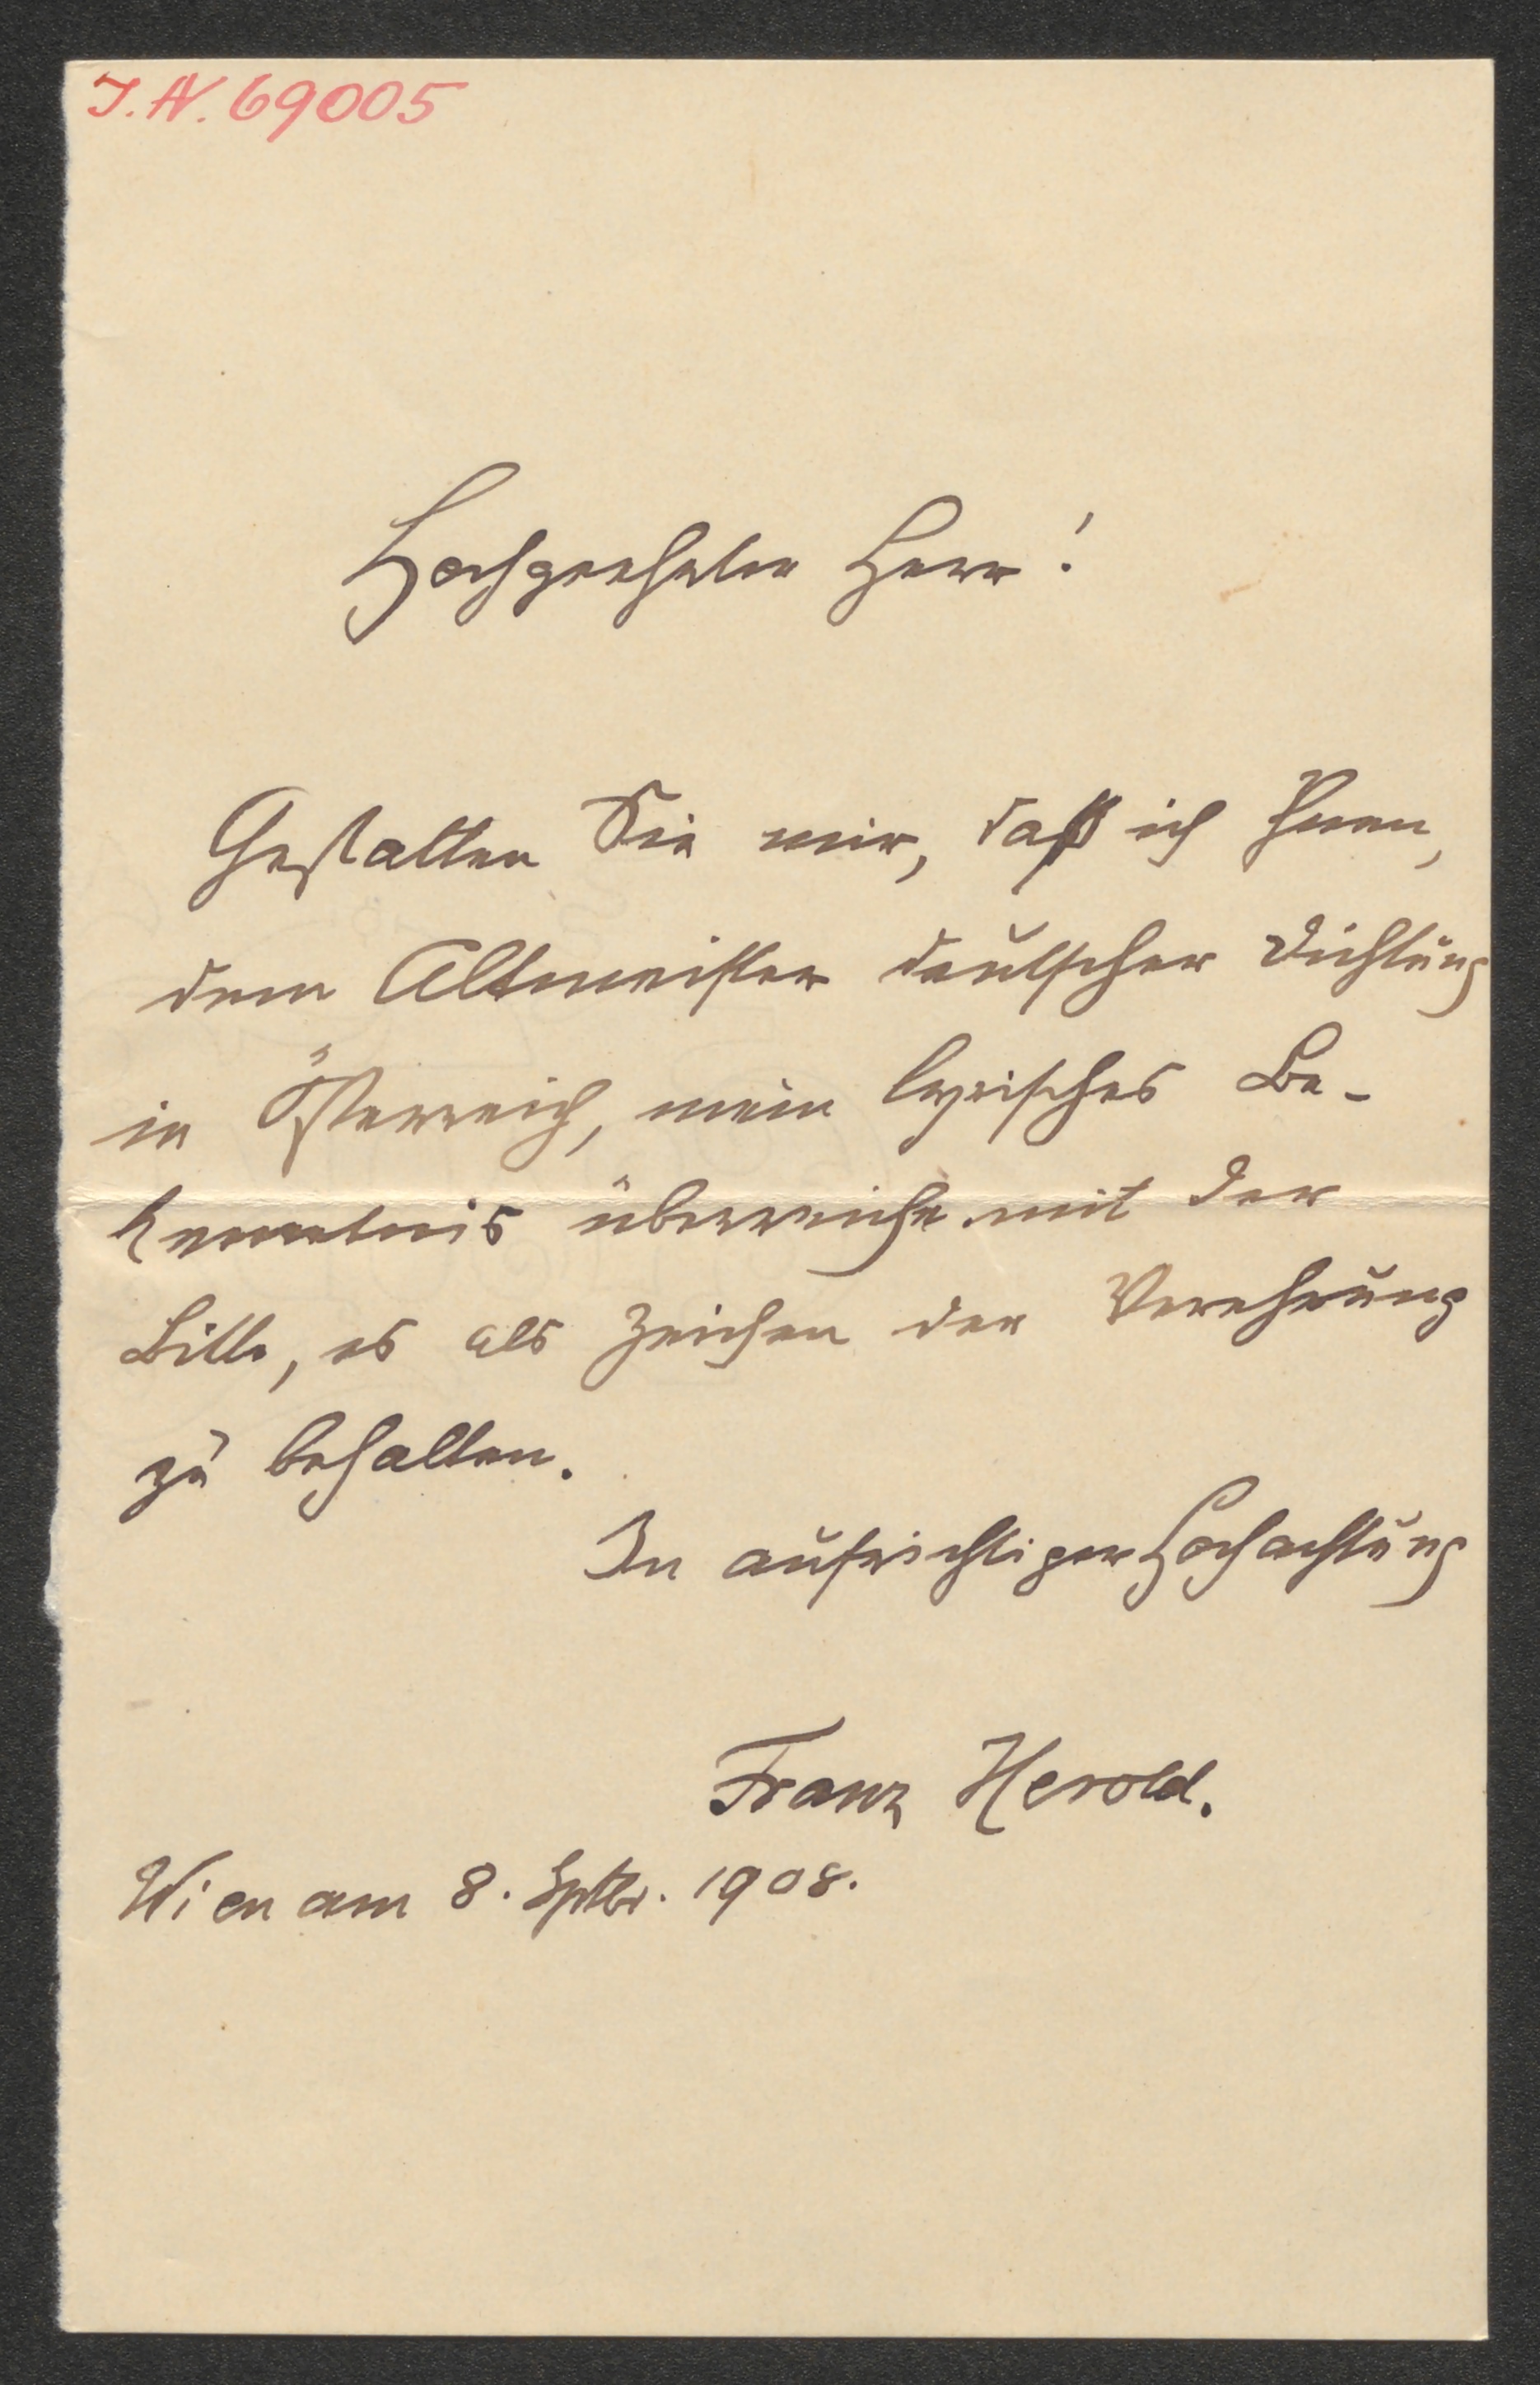 I.N. 69005
Hochgeehrter Herr!
Gestatten Sie mir, daß ich Ihnen,
dem Altmeister deutscher Dichtung
in Österreich, mein lyrisches Be-
kenntnis überreiche mit der
Bitte, es als Zeichen der Verehrung
zu behalten.
In aufrichtiger Hochachtung
Franz Herold.
Wien am 8. Sptbr. 1908.